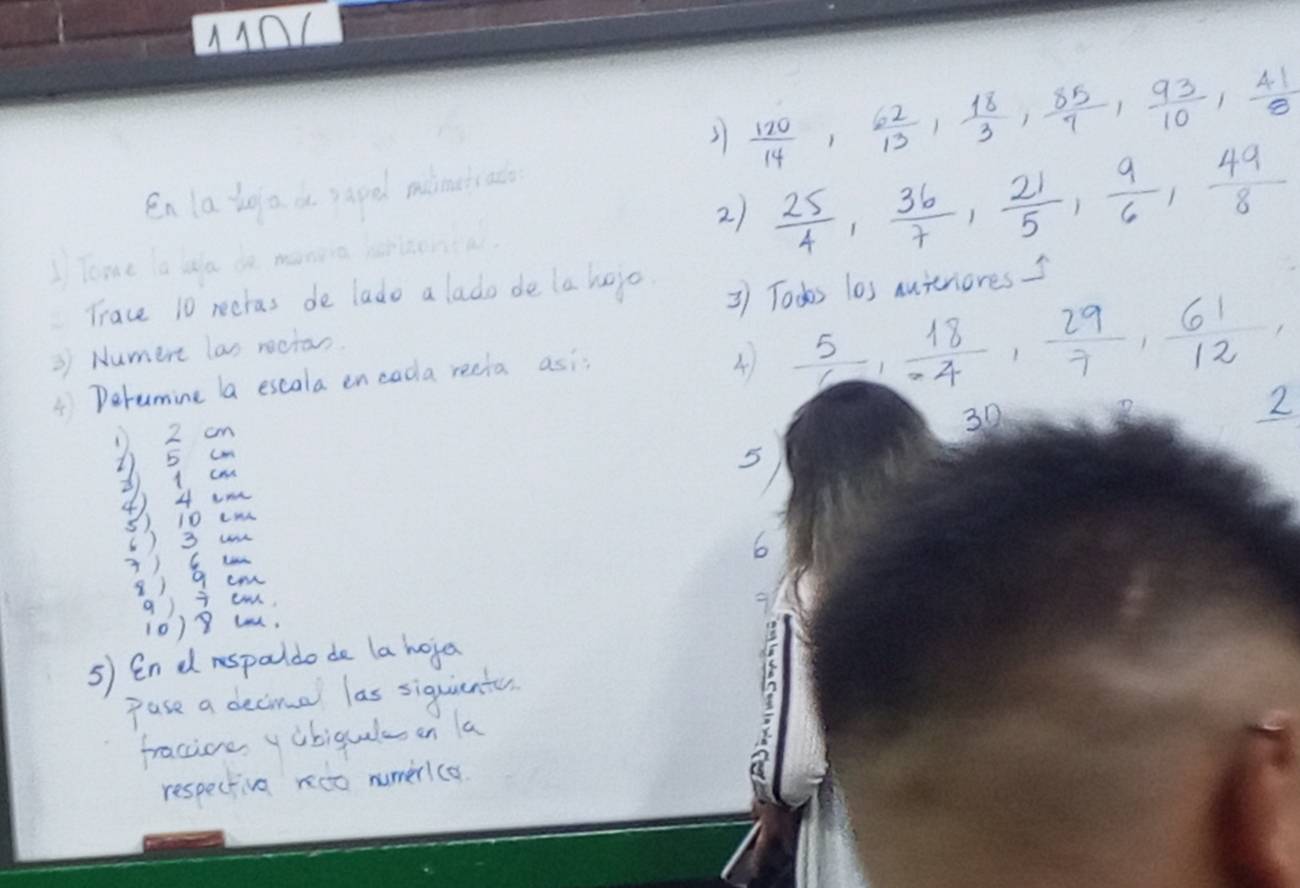 En la hoja de papel milimetrado:
1) Tome la hoja de manera horizontal.
Trace 10 rectas de lado a lado de la hoja.
3) Numere las rectas.
4) Determine la escala en cada recta asi:
1) 2 cm
2) 5 cm
3) 1 cm
4) 4 cm
5) 10 cm
6) 3 cm
7) 6 cm
8) 9 cm
9) 7 cm.
10) 8 cm.
5) En el respaldo de la hoja
Pase a decimal las siguientes
fracciones y úbiquelas en la
respectiva recta numérica.
1) 120/14, 62/13, 18/3, 85/7, 93/10, 41/8
2) 25/4, 36/7, 21/5, 9/6, 49/8
3) Todos los anteriores ↑
4) 5/, 18/-4, 29/7, 61/12,
5) 30 2
6
7